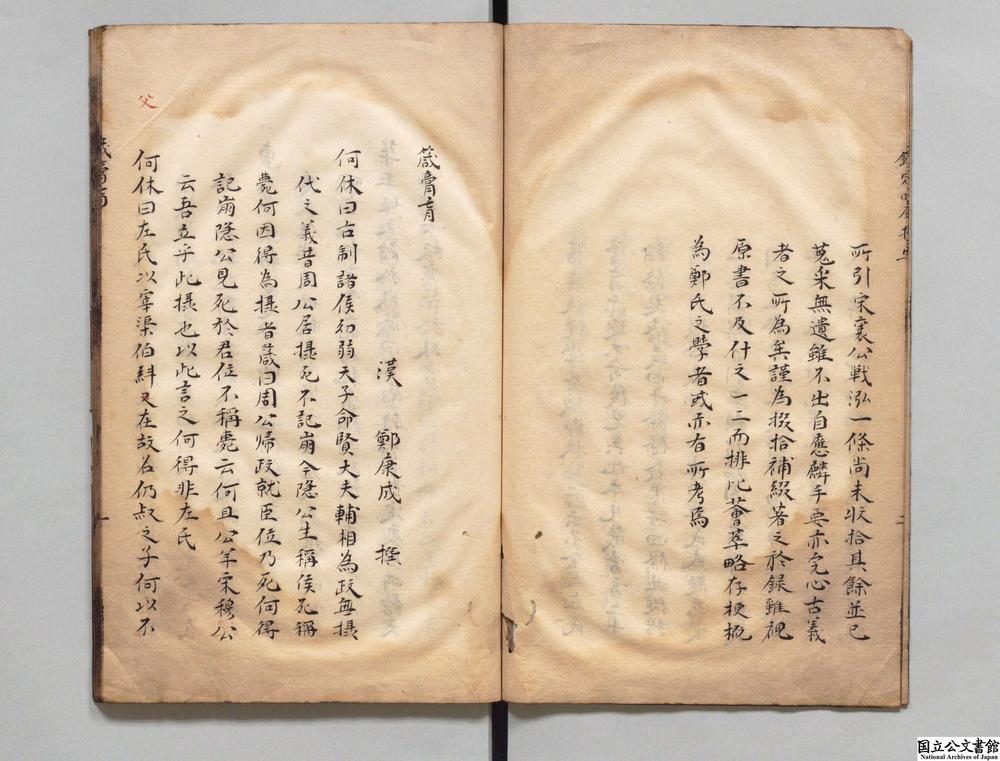 所引宋襄公戦泓一條尚未収拾其餘並已
蒐采無遺雖不出自應麟手要亦究心古義
者之所為矣謹為掇拾補綴著之於録雖視
原書不及什之一二而排比薈萃略存梗概
為鄭氏之學者或亦有所考焉
箴膏肓
漢　鄭康成　撰
何休曰古制諸侯幼弱天子命賢大夫輔相為政無攝
代之義昔周公居攝死不記崩今隱公生稱侯死稱
薨何因得為攝者箴曰周公歸政就臣位乃死何得
記崩隱公見死於君位不稱薨云何且公羊宋穆公
云吾立乎此攝也以此言之何得非左氏
何休曰左氏以宰渠伯糾父在故名仍叔之子何以不
父
箴膏肓
一
国立公文書館
National Archives of Japan